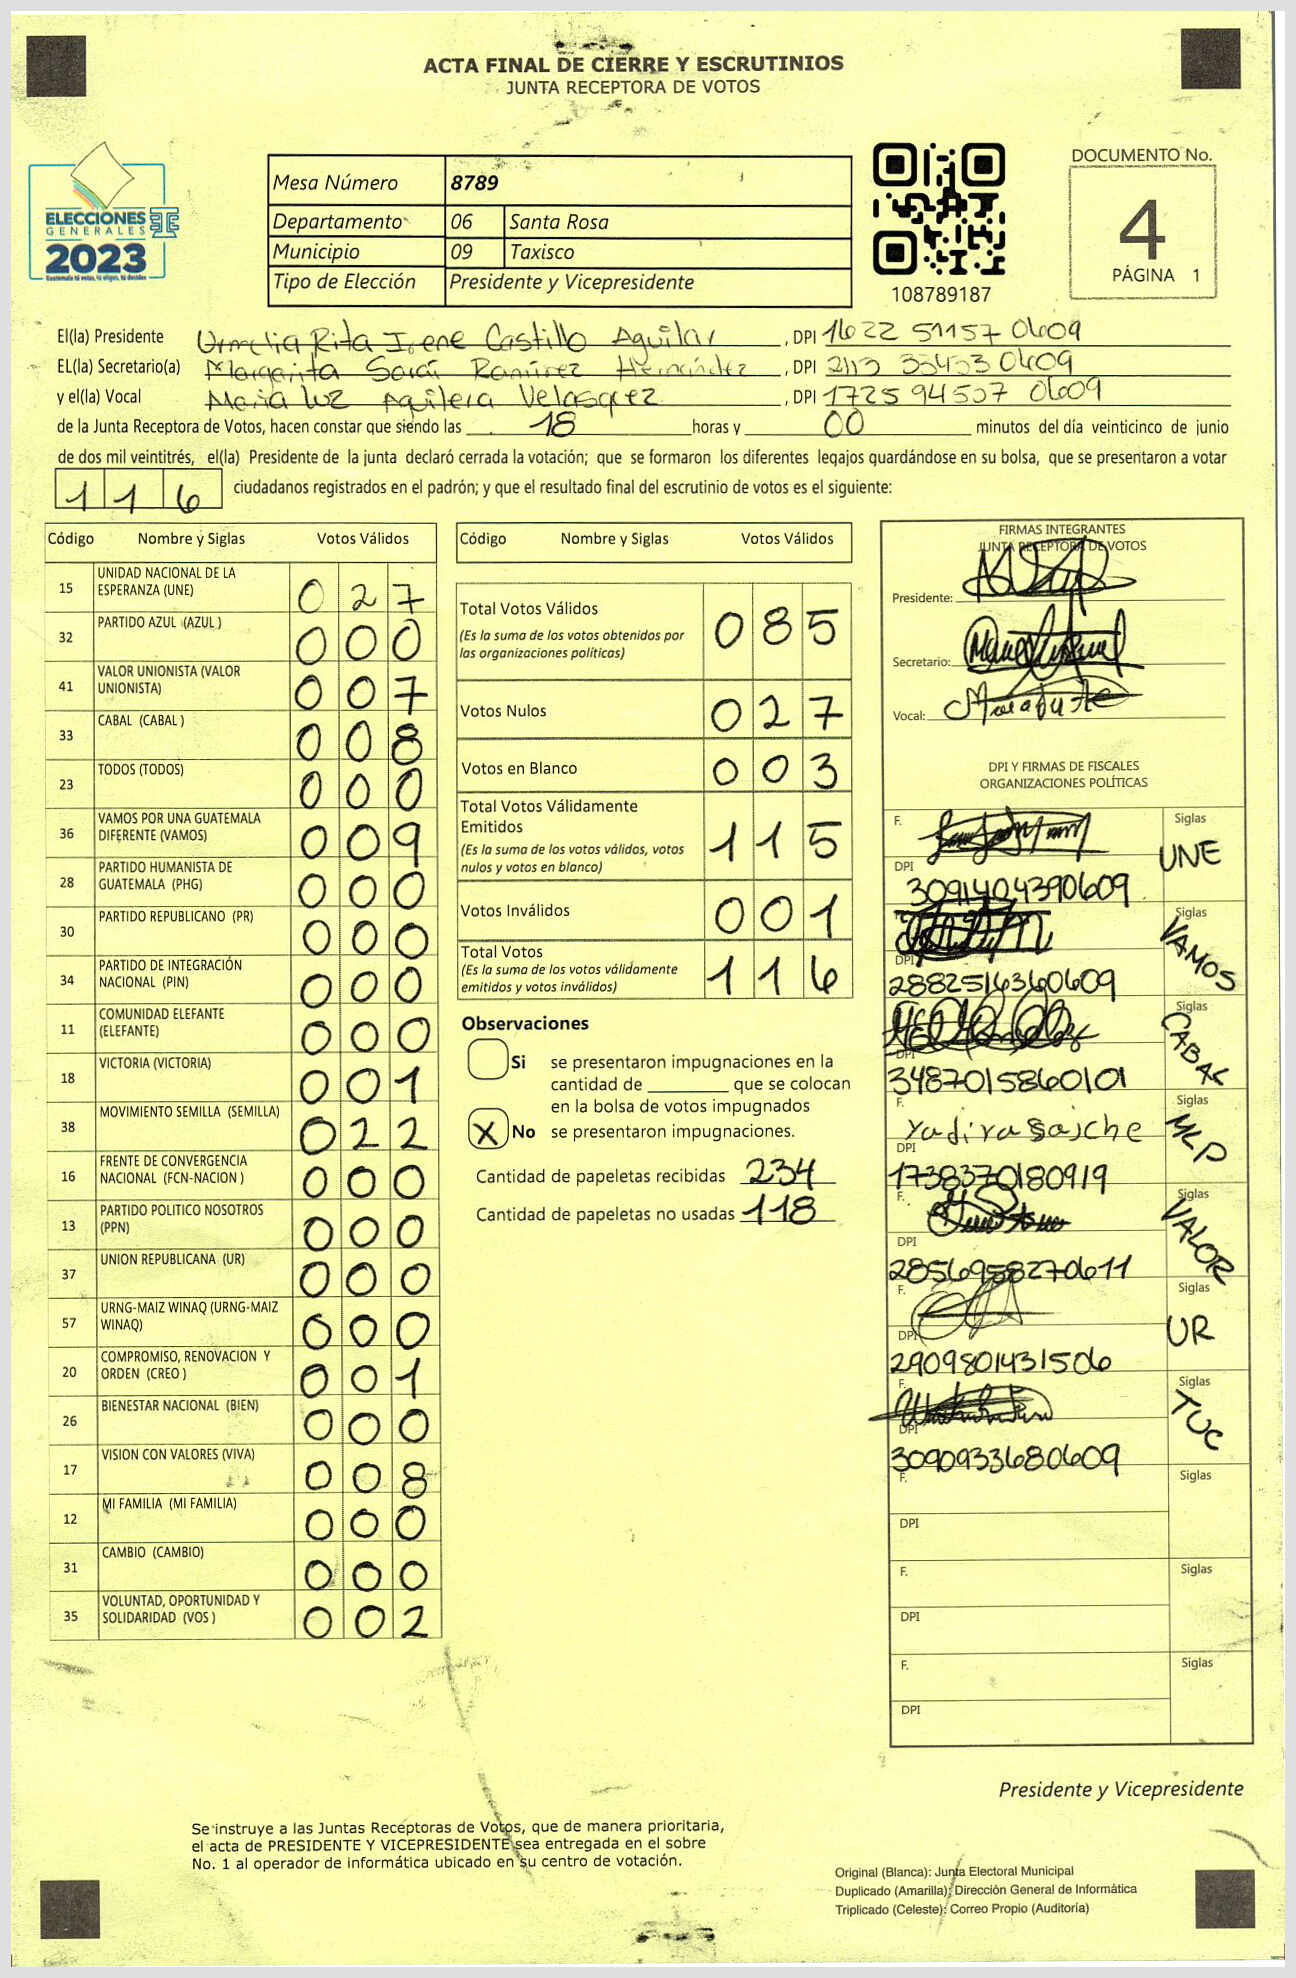 ACTA FINAL DE CIERRE Y ESCRUTINIOS
JUNTA RECEPTORA DE VOTOS
ELECCIONES
GENERALES
2023
Mesa Número 8789
Departamento 06 Santa Rosa
Municipio 09 Taxisco
Tipo de Elección Presidente y Vicepresidente
108789187
DOCUMENTO No.
4
PÁGINA 1
El(la) Presidente Rita Irene Castillo Aguilar , DPI 1622 51157 0609
EL(la) Secretario(a) Margarita Saraí Ramírez Hernández , DPI 2113 33433 0609
y el(la) Vocal Maria Luz Aguilera Velasquez , DPI 1725 94507 0609
de la Junta Receptora de Votos, hacen constar que siendo las 18 horas y 00 minutos del día veinticinco de junio
de dos mil veintitrés, el(la) Presidente de la junta declaró cerrada la votación; que se formaron los diferentes legajos guardándose en su bolsa, que se presentaron a votar
116 ciudadanos registrados en el padrón; y que el resultado final del escrutinio de votos es el siguiente:
Código Nombre y Siglas Votos Válidos
15 UNIDAD NACIONAL DE LA ESPERANZA (UNE) 027
32 PARTIDO AZUL (AZUL ) 000
41 VALOR UNIONISTA (VALOR UNIONISTA) 007
33 CABAL (CABAL ) 008
23 TODOS (TODOS) 000
36 VAMOS POR UNA GUATEMALA DIFERENTE (VAMOS) 009
28 PARTIDO HUMANISTA DE GUATEMALA (PHG) 000
30 PARTIDO REPUBLICANO (PR) 000
34 PARTIDO DE INTEGRACIÓN NACIONAL (PIN) 000
11 COMUNIDAD ELEFANTE (ELEFANTE) 000
18 VICTORIA (VICTORIA) 001
38 MOVIMIENTO SEMILLA (SEMILLA) 022
16 FRENTE DE CONVERGENCIA NACIONAL (FCN-NACION ) 000
13 PARTIDO POLITICO NOSOTROS (PPN) 000
37 UNION REPUBLICANA (UR) 000
57 URNG-MAIZ WINAQ (URNG-MAIZ WINAQ) 000
20 COMPROMISO, RENOVACION Y ORDEN (CREO ) 001
26 BIENESTAR NACIONAL (BIEN) 000
17 VISION CON VALORES (VIVA) 008
12 MI FAMILIA (MI FAMILIA) 000
31 CAMBIO (CAMBIO) 000
35 VOLUNTAD, OPORTUNIDAD Y SOLIDARIDAD (VOS ) 002
Código Nombre y Siglas Votos Válidos
Total Votos Válidos 085
(Es la suma de los votos obtenidos por
las organizaciones políticas)
Votos Nulos 027
Votos en Blanco 003
Total Votos Válidamente
Emitidos 115
(Es la suma de los votos válidos, votos
nulos y votos en blanco)
Votos Inválidos 001
Total Votos 116
(Es la suma de los votos válidamente
emitidos y votos inválidos)
Observaciones
Si se presentaron impugnaciones en la
cantidad de ________ que se colocan
en la bolsa de votos impugnados
X No se presentaron impugnaciones.
Cantidad de papeletas recibidas 234
Cantidad de papeletas no usadas 118
FIRMAS INTEGRANTES
JUNTA RECEPTORA DE VOTOS
Presidente:
Secretario:
Vocal:
DPI Y FIRMAS DE FISCALES
ORGANIZACIONES POLÍTICAS
F. Siglas UNE
DPI 3091404390609
Siglas VAMOS
DPI 2882516360609
Siglas CABAL
DPI 3487015860101
F. Siglas MLP
DPI 1738370180919
F. Siglas VALOR
DPI 2856958270611
F. Siglas UR
DPI 2909801431506
F. Siglas TUC
DPI 3090933680609
F. Siglas
DPI
F. Siglas
DPI
F. Siglas
DPI
Presidente y Vicepresidente
Se instruye a las Juntas Receptoras de Votos, que de manera prioritaria,
el acta de PRESIDENTE Y VICEPRESIDENTE sea entregada en el sobre
No. 1 al operador de informática ubicado en su centro de votación.
Original (Blanca): Junta Electoral Municipal
Duplicado (Amarilla): Dirección General de Informática
Triplicado (Celeste): Correo Propio (Auditoría)